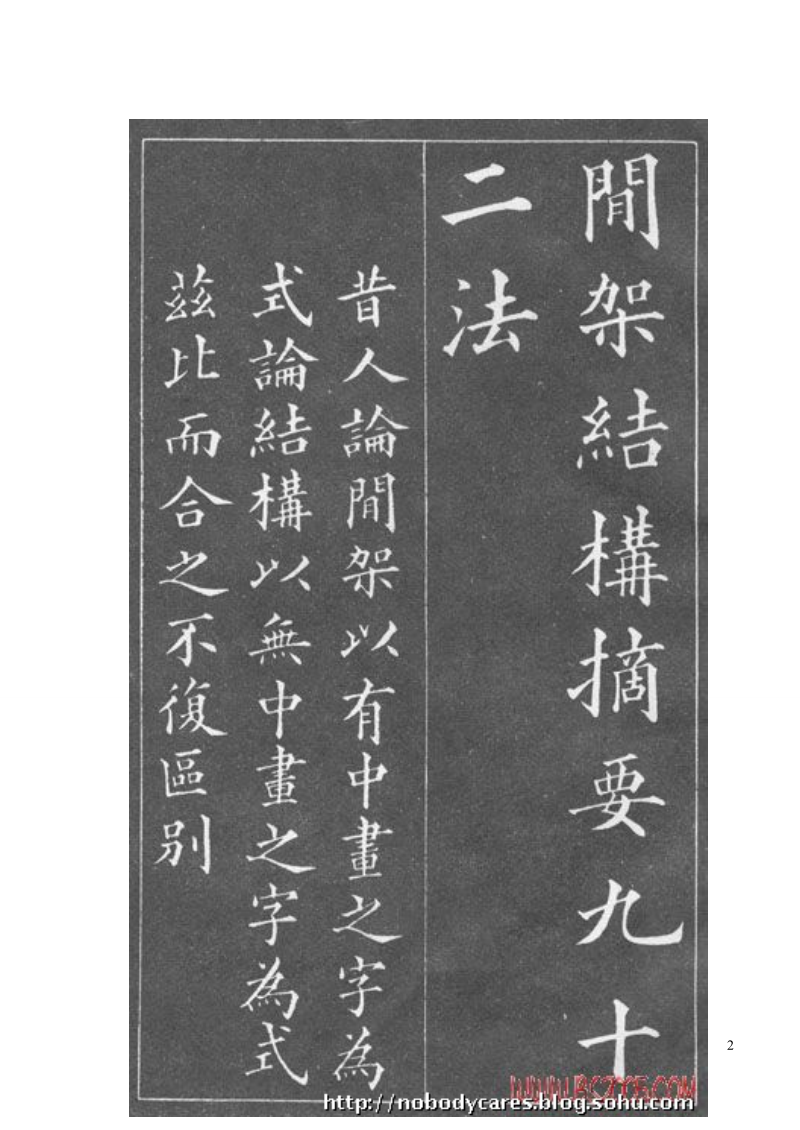 閒架結構摘要九十
二法
昔人論閒架以有中畫之字為
式論結構以無中畫之字為式
茲比而合之不復區别
2
http://nobodycares.blog.sohu.com